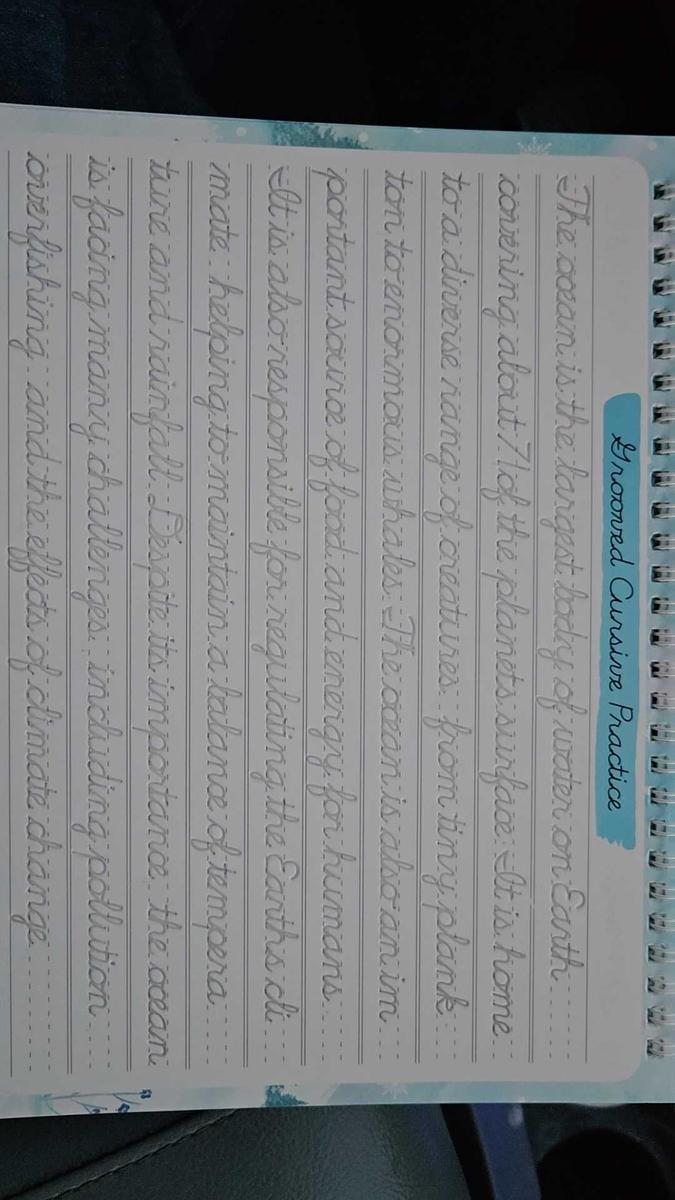 Grooved Cursive Practice
The ocean is the largest body of water on Earth
covering about 71 of the planets surface. It is home
to a diverse range of creatures from tiny plank
ton to enormous whales. The ocean is also an im
portant source of food and energy for humans
It is also responsible for regulating the Earths cli
mate helping to maintain a balance of tempera
ture and rainfall. Despite its importance, the ocean
is facing many challenges, including pollution
overfishing and the effects of climate change